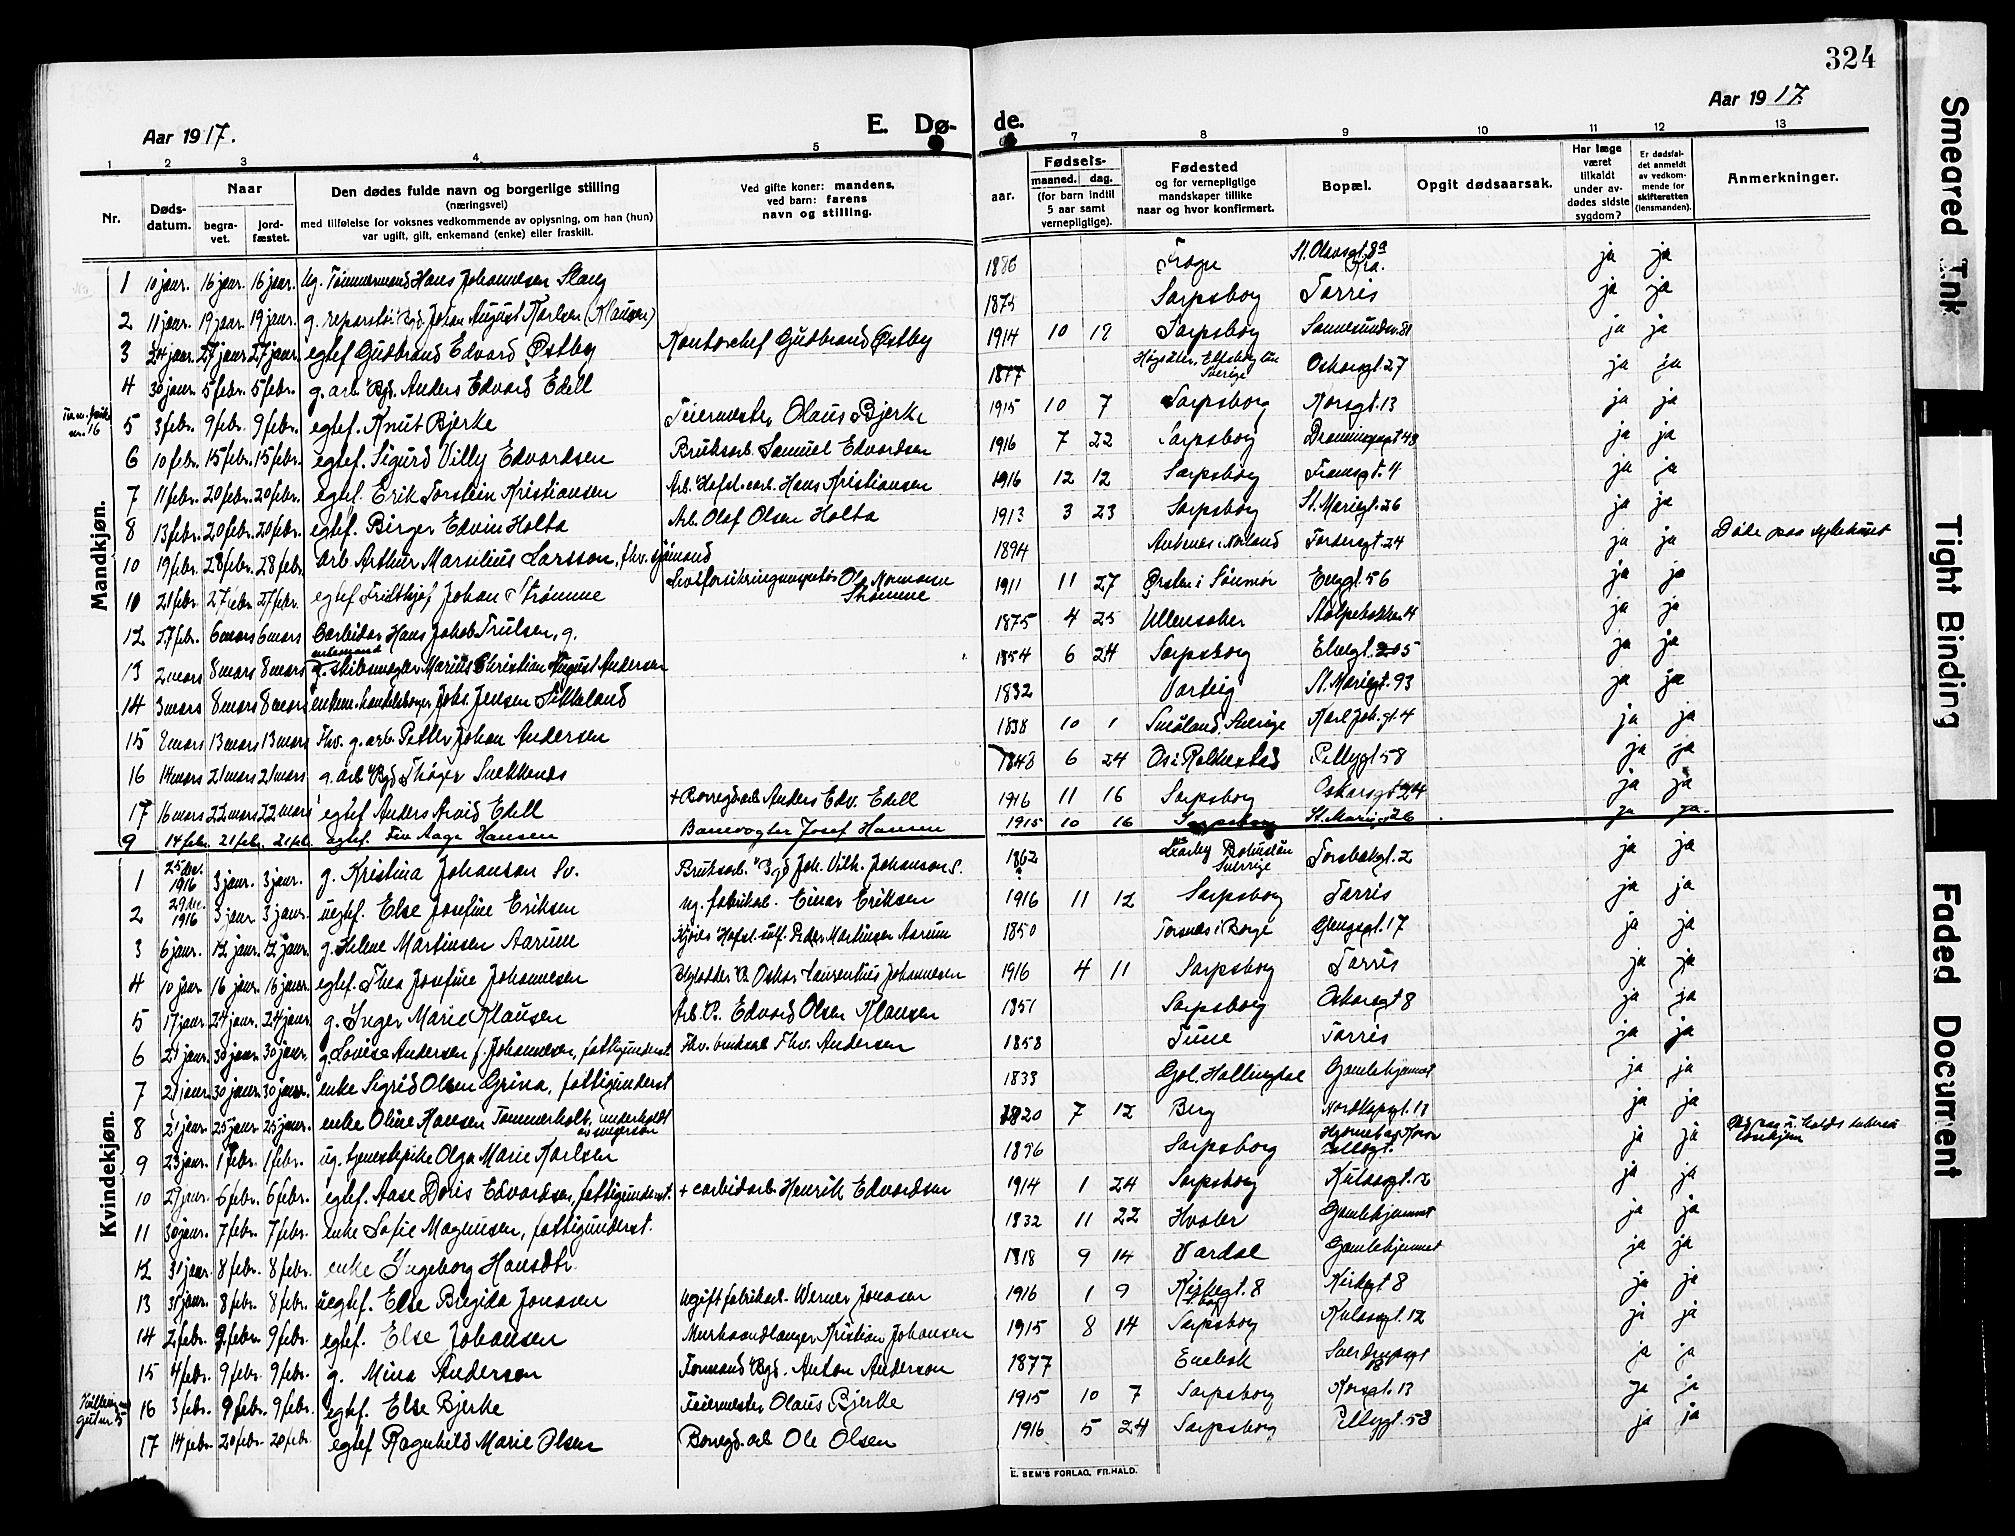 324
Aar 1917.
E. Dø-
de.
Aar 1917.
1 2 3 4 5 7 8 9 10 11 12 13
Nr.
Døds-datum.
Naar
begra-vet.
jord-fæstet.
Den dødes fulde navn og borgerlige stilling
(næringsvei)
med tilføielse for voksnes vedkommende av oplysning, om han (hun)
var ugift, gift, enkemand (enke) eller fraskilt.
Ved gifte koner: mandens,
ved barn: farens
navn og stilling.
aar.
Fødsels-
maaned. dag.
(for barn indtil
5 aar samt
vernepligtige).
Fødested
og for vernepligtige
mandskaper tillike
naar og hvor konfirmert.
Bopæl.
Opgit dødsaarsak.
Har læge
været
tilkaldt
under av-
dødes sidste
sygdom?
Er dødsfal-
det anmeldt
av vedkom-
mende for
skifteretten
(lensmanden).
Anmerkninger.
Mandkjøn.
1 10 jaar. 16 jaar. 16 jaar. Ug. Tømmermand Hans Johannesen Stang 1886 Frogn St. Olavsgt. 8a Kra. ja ja
2 11 jaar. 19 jaar. 19 jaar. g. reparatør Johan August Karlsen (Klausen) 1875 Sarpsborg Tarris ja ja
3 24 jaar. 27 jaar. 27 jaar. egtef Gudbrand Edvard Østby Kontorchef Gudbrand Østby 1914 10 19 Sarpsborg Sannesundsv. 81 ja ja
4 30 jaar. 5 febr. 5 febr. g. arb. Bgd. Anders Edvard Edell 1877 Sverige Oskarsgt. 27 ja ja
5 3 febr. 9 febr. 9 febr. egtef. Knut Bjerke Feiermester Olaus Bjerke 1915 10 7 Sarpsborg Korsgt. 13 ja ja
6 10 febr. 15 febr. 15 febr. egtef. Sigurd Villy Edvardsen Bruksarb. Samuel Edvardsen 1916 7 22 Sarpsborg Dronningensgt 48 ja ja
7 11 febr. 20 febr. 20 febr. egtef. Erik Torstein Kristiansen Arb. Hafsl. carb. Hans Kristiansen 1916 12 12 Sarpsborg Framsgt. 4 ja ja
8 13 febr. 20 febr. 20 febr. egtef. Birger Edvin Holta Arb. Olaf Olsen Holta 1913 3 23 Sarpsborg St. Mariegt. 26 ja ja
10 19 febr. 28 febr. 28 febr. arb. Arthur Marsilius Larsson, fhv. sjømand 1894 Ankenes i Norland Fordersgt. 24 ja ja Døde paa sykehuset
10 21 febr. 27 febr. 27 febr. egtef Fridthjof Johan Strømme Livsforsikringsinspektør Ole Normann Strømme 1911 11 27 Ørsten i Sønmør Enggt. 56 ja ja
12 27 febr. 6 mars 6 mars Carbidarb Hans Jakob Trulsen, g. 1875 4 25 Ullensaker Stolpebakken 14 ja ja
13 2 mars 8 mars 8 mars enkemand skibsmægler Marius Christian August Andersen 1854 6 24 Sarpsborg Elvegt. 5 ja ja
14 3 mars 8 mars 8 mars enkem. handelsborger Johs. Jensen Sikkeland 1832 Varteig St. Mariegt. 93 ja ja
15 8 mars 13 mars 13 mars Fhv. g. arb. Petter Johan Andersen 1838 10 1 Småland, Sverige Karl Joh. gt. 4 ja ja
16 14 mars 21 mars 21 mars g. arb. Bgd. Thøger Snekkenes 1848 6 24 Os i Rakkestad Pellygt 58 ja ja
17 16 mars 22 mars 22 mars egtef Anders Arvid Edell + Borregd. arb Anders Edv. Edell 1916 11 16 Sarpsborg Oskarsgt 24 ja ja
9 14 febr. 21 febr. 21 febr. egtef. Finn Aage Hansen Banevogter Josef Hansen 1915 10 16 Sarpsborg St. Mariegt 26 ja ja
Kvindekjøn.
1 25 des. 1916 3 jaar. 3 jaar. g. Kristina Johanson Sv. Bruksarb. Bgd Joh. Vilh. Johanson S. 1862 Bohuslän Sverrige Torsbakgt. 2 ja ja
2 29 des. 1916 3 jaar 3 jaar. uegtef. Else Josefine Eriksen ug. fabrikarb. Einar Eriksen 1916 11 12 Sarpsborg Tarris ja ja
3 6 jaar. 12 jaar. 12 jaar. g. Helene Martinsen Aarum Kjører Hafsl. sulf. Peder Martinsen Aarum 1850 Torsnes i Borge Glengsgt. 17 ja ja
4 10 jaar 16 jaar. 16 jaar. egtef. Thea Josefine Johannesen Oskar Laurentius Johannesen 1916 4 11 Sarpsborg Tarris ja ja
5 17 jaar. 24 jaar. 24 jaar. g. Inger Marie Klausen Arb. Edvard Olsen Klausen 1851 Sarpsborg Oskarsgt 8 ja ja
6 21 jaar. 30 jaar. 30 jaar. g. Lovise Andersen f. Johannesen, fattigunderst. Fhv. bruksarb Fhv. Andersen 1858 Tune Tarris ja ja
7 21 jaar 30 jaar. 30 jaar. enke Sigrid Olsen Grina, fattigunderst 1833 Gol. Hallingdal Gamlehjemmet ja ja
8 21 jaar. 25 jaar. 25 jaar. enke Oline Hansen Tømmerholt, underholdt av svigersøn 1820 7 12 Berg Nordkapgt. 13 ja ja
9 23 jaar. 1 febr. 1 febr. ug. tjenestepike Olga Marie Karlsen 1896 Sarpsborg ja ja
10 29 jaar. 6 febr. 6 febr. egtef. Aase Doris Edvardsen, fattigunderst. + carbidarb. Henrik Edvardsen 1914 1 24 Sarpsborg Kulaasgt. 12 ja ja
11 30 jaar. 7 febr. 7 febr. enke Sofie Magnussen, fattigunderst. 1832 11 22 Hvaler Gamlehjemmet ja ja
12 31 jaar. 8 febr. 8 febr. enke Ingeborg Hansdtr. 1818 9 14 Vardal Gamlehjemmet ja ja
13 31 jaar. 8 febr. 8 febr. uegtef. Else Birgida Jonasen ugift fabrikarb. Werner Jonasen 1916 1 9 Kirkegt. 8 S.borg Kirkegt 8 ja ja
14 2 febr. 9 febr. 9 febr. egtef. Else Johansen Murhaandlanger Kristian Johansen 1915 8 14 Sarpsborg Kulaasgt. 12 ja ja
15 4 febr. 9 febr. 9 febr. g. Mina Anderson Formand Bgd. Anton Anderson 1877 Enebak Sverdrupsgt 18 ja ja
16 3 febr. 9 febr. 9 febr. egtef. Else Bjerke Feiermester Olaus Bjerke 1915 10 7 Sarpsborg Korsgt. 13 ja ja
17 14 febr 20 febr 20 febr. egtef Ragnhild Marie Olsen Borregd. arb Ole Olsen 1916 5 24 Sarpsborg Pellygt. 58 ja ja
E. SEM'S FORLAG, FR.HALD.
Smeared Ink
Tight Binding
Faded Document